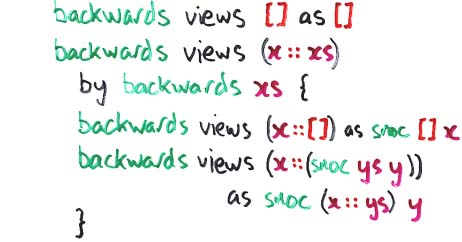 backwards views [] as []
backwards views (x :: xs)
by backwards xs {
backwards views (x::[]) as snoc [] x
backwards views (x::(snoc ys y))
as snoc (x::ys) y
}